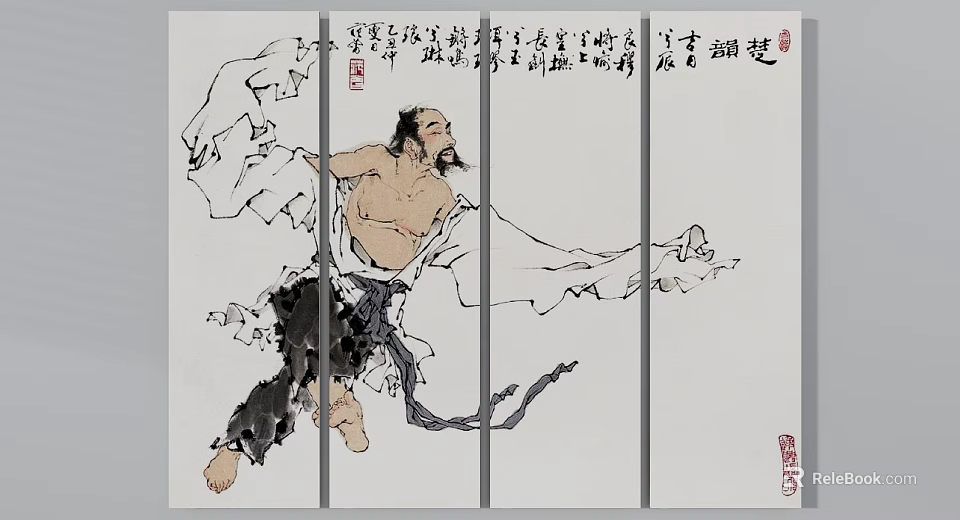 楚韻
吉日
兮辰
良穆
將愉
兮上
皇撫
長劍
兮玉
珥璆
鏘鳴
兮琳
琅
乙丑仲
夏日
范曾
ReleBook.com